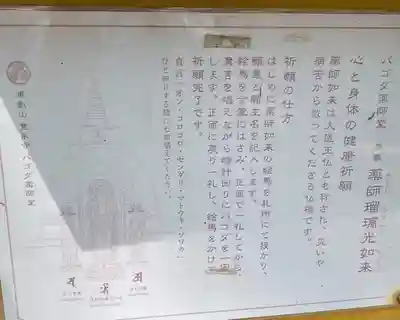 パゴダ薬師堂
本尊 薬師瑠璃光如来
心と身体の健康祈願
薬師如来は大医王仏とも称され、災いや
病苦から救ってくださる仏様です。
祈願の仕方
はじめに薬師如来の絵馬を札所にて授かり、
願意と願主名を記入します。
絵馬を合掌にはさみ、正面で一礼してから、
真言を唱えながら時計回りにパゴダを一周
します。正面に戻り一礼し、絵馬をかけて
祈願完了です。
真言「オン・コロコロ・センダリ・マトウギ・ソワカ」
ひと回りする間に七回唱えてください。
パゴダ薬師堂